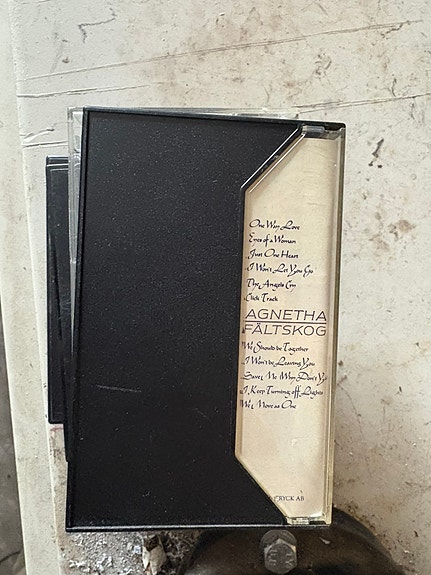 One Way Love
Eyes of a Woman
Just One Heart
I Won't Let You Go
The Angels Cry
Click Track
AGNETHA
FÄLTSKOG
We Should be Together
I Won't be Leaving You
Save Me Why Don't Yo
I Keep Turning off Lights
We Move as One
RYCK AB